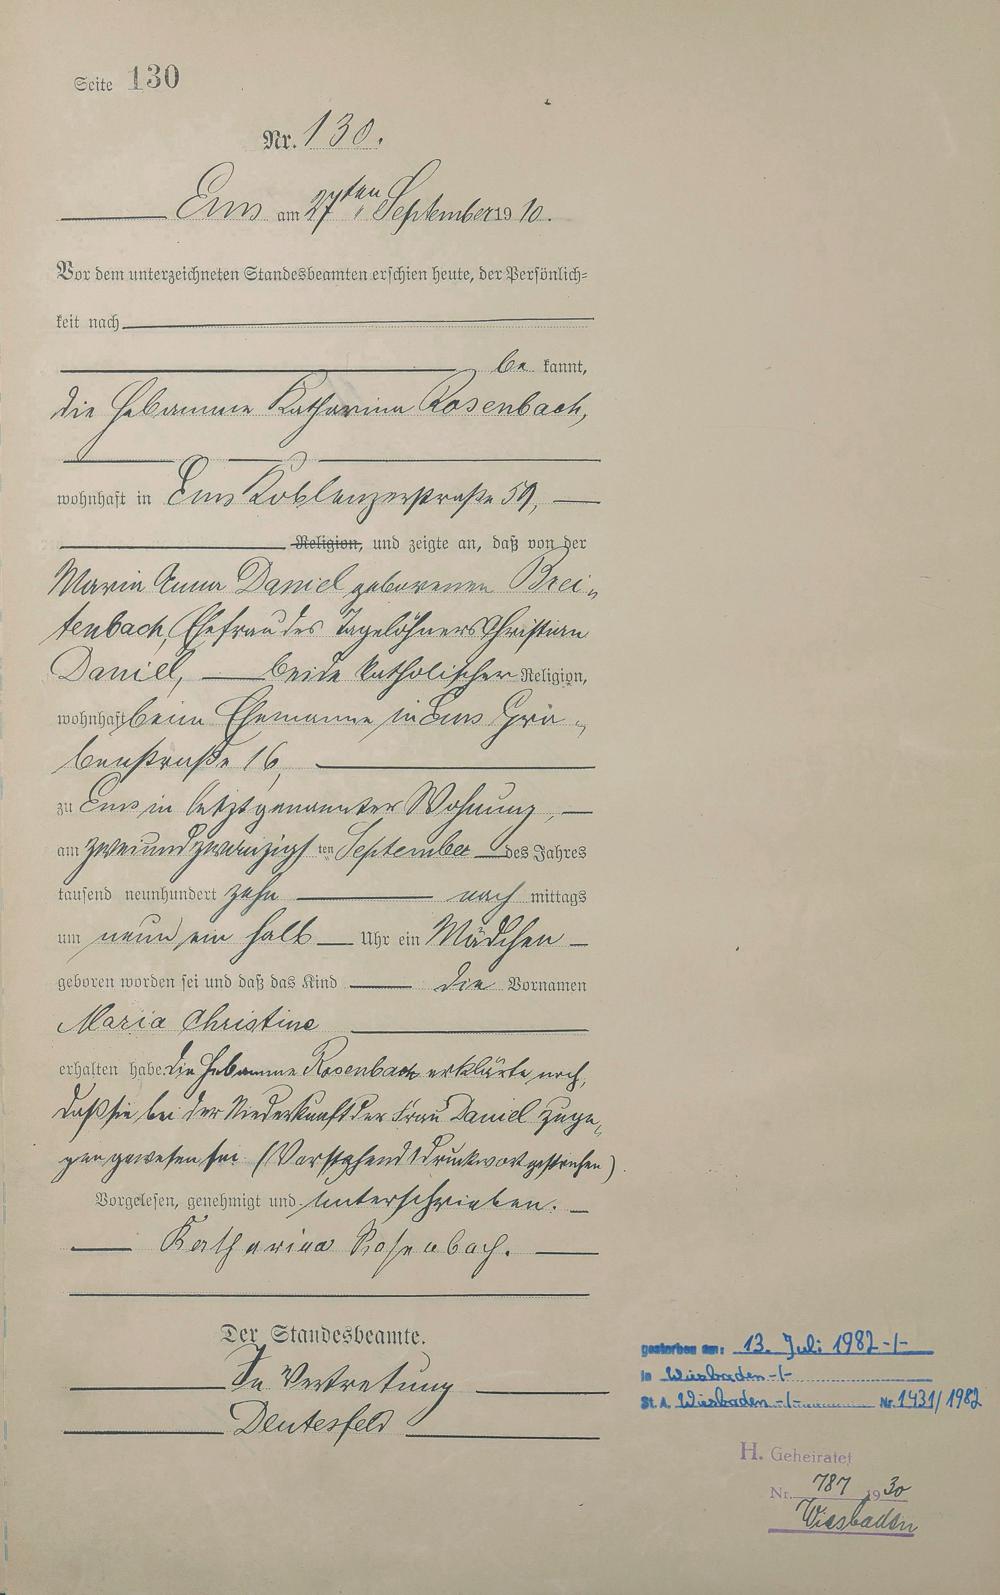 Seite 130
Nr. 130.
Ems am 27ten September 19 10.
Vor dem unterzeichneten Standesbeamten erschien heute, der Persönlich=
keit nach
be kannt,
die Hebamme Katharina Rosenbach,
wohnhaft in Ems Koblenzerstraße 59,
Religion, und zeigte an, daß von der
Maria Anna Daniel geborenen Brei-
tenbach, Ehefrau des Tagelöhners Christian
Daniel, beide katholischer Religion,
wohnhaft beim Ehemanne in Ems Grä-
benstraße 16,
zu Ems in letztgenannter Wohnung,
am zweiundzwanzigs ten September des Jahres
tausend neunhundert zehn nach mittags
um neun ein halb Uhr ein Mädchen
geboren worden sei und daß das Kind die Vornamen
Maria Christine
erhalten habe. Die Hebamme Rosenbach erklärte noch,
daß sie bei der Niederkunft der Frau Daniel zuge-
gen gewesen sei. (Vorstehend 1 Druckwort gestrichen)
Vorgelesen, genehmigt und unterschrieben.
Katharina Rosenbach.
Der Standesbeamte.
In Vertretung
Deutesfeld
gestorben am: 13. Juli 1982 -/-
in Wiesbaden -/-
St. A. Wiesbaden -/- Nr. 1431/1982
H. Geheiratet
Nr. 787 19 30
Wiesbaden